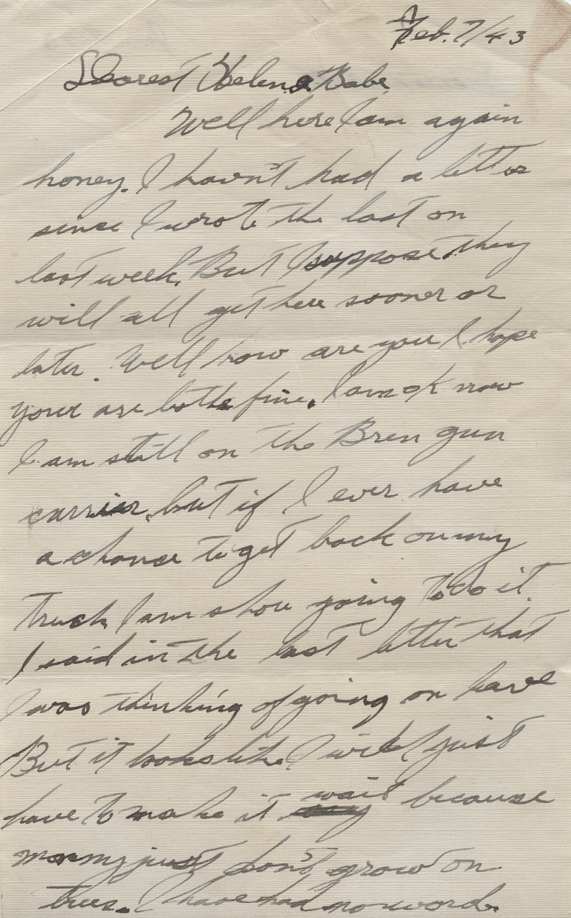 Feb. 7/43
Dearest Helen & Babe
Well here I am again
honey. I havn't had a letter
since I wrote the last on
last week. But I suppose they
will all get here sooner or
later. Well how are you I hope
your are bothe fine. I am ok now
I am still on the Bren gun
carrier, but if I ever have
a chance to get back on my
truck I am shou going to do it.
I said in the last letter that
I was thinking of going on leave
But it looks like I will just
have to make it wait because
monny just don't grow on
trees. I have had no word